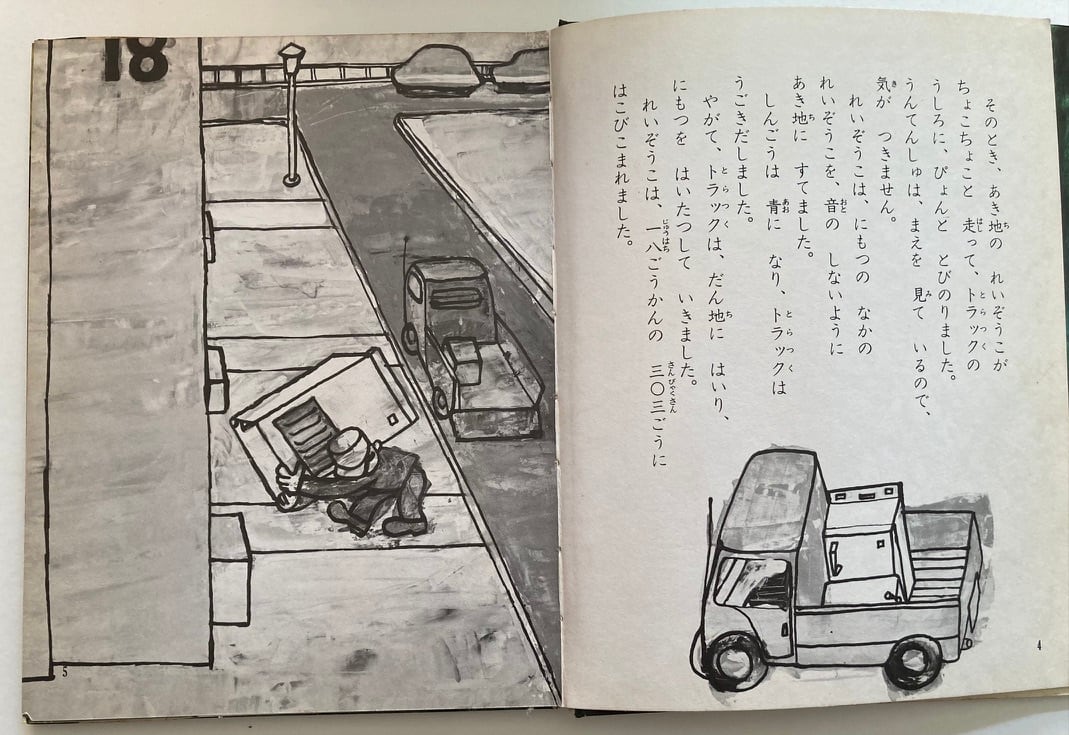 そのとき、あき地の　れいぞうこが
ちょこちょこと　走って、トラックの
うしろに、ぴょんと　とびのりました。
うんてんしゅは、まえを　見て　いるので、
気が　つきません。
れいぞうこは、にもつの　なかの
れいぞうこを、音の　しないように
あき地に　すてました。
しんごうは　青に　なり、トラックは
うごきだしました。
やがて、トラックは、だん地に　はいり、
にもつを　はいたつして　いきました。
れいぞうこは、一八ごうかんの　三〇三ごうに
はこびこまれました。
4
18
5